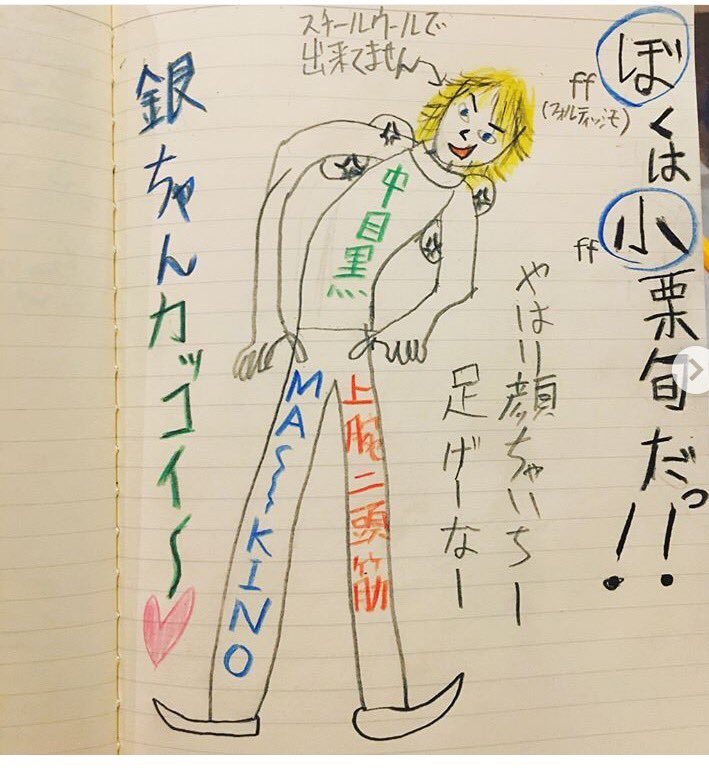 ぼくは小栗旬だっ!!
ff
(フォルティッシモ)
ff
スチールウールで
出来てません
やはり顔ちいちー
足げーなー
中目黒
上腕二頭筋
MA~~KINO
銀ちゃんカッコイ〜